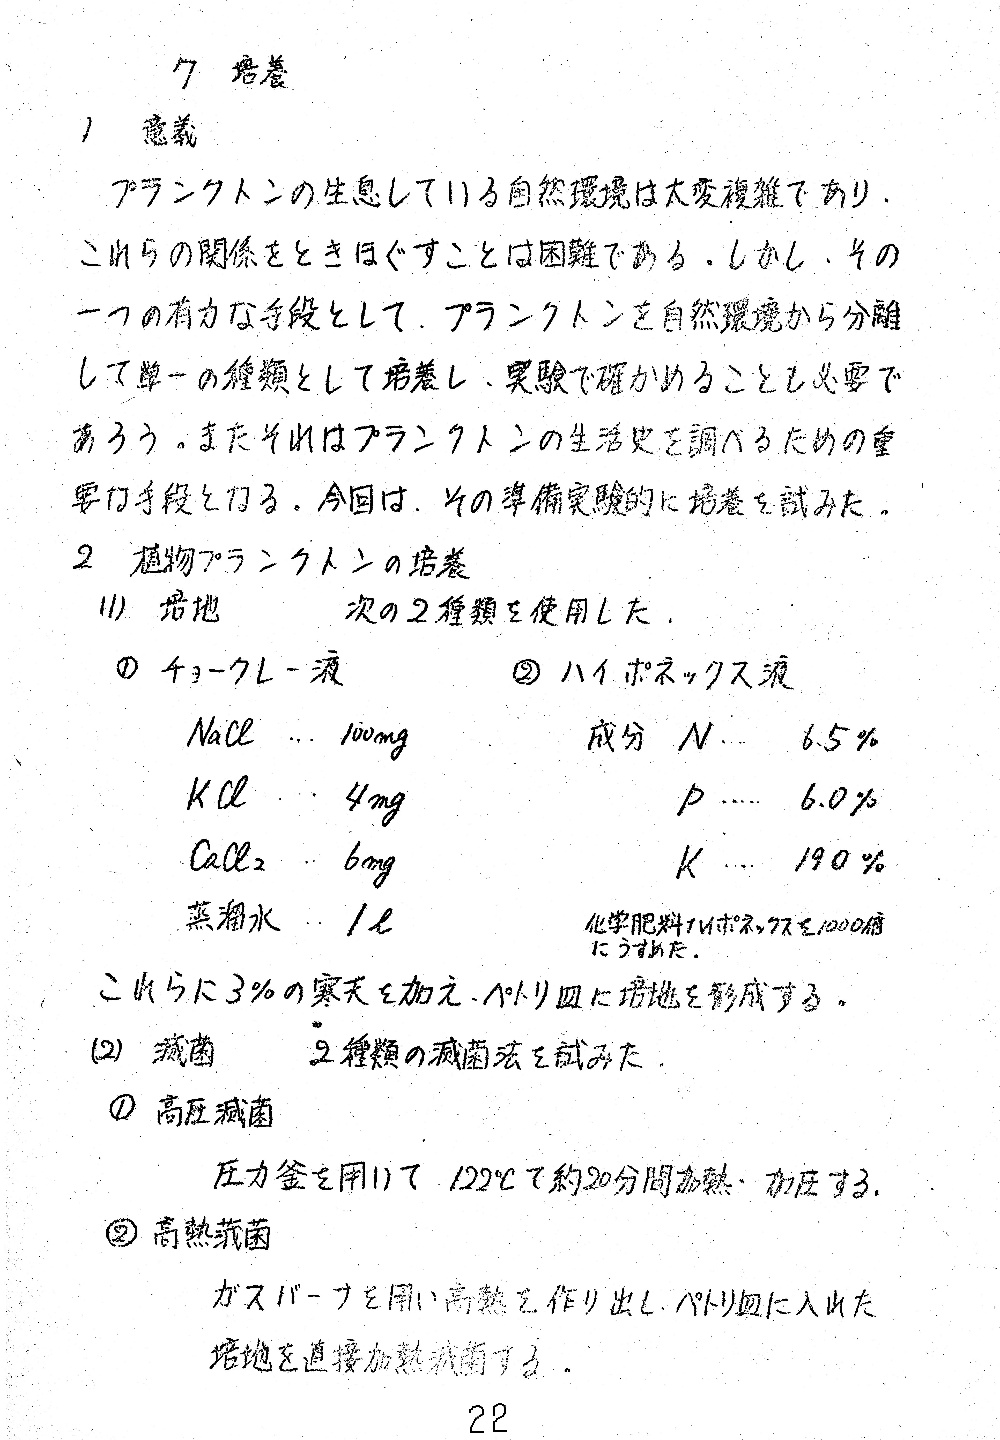 7 培養
1 意義
プランクトンの生息している自然環境は大変複雑であり、
これらの関係をときほぐすことは困難である。しかし、その
一つの有力な手段として、プランクトンを自然環境から分離
して単一の種類として培養し、実験で確かめることも必要で
あろう。またそれはプランクトンの生活史を調べるための重
要な手段となる。今回は、その準備実験的に培養を試みた。
2 植物プランクトンの培養
(1) 培地 次の2種類を使用した.
① チョークレー液 ② ハイポネックス液
NaCl … 100mg 成分 N … 6.5%
KCl … 4mg P …‥ 6.0%
CaCl₂ ‥ 6mg K … 19.0%
蒸溜水 ‥ 1ℓ 化学肥料ハイポネックスを1000倍
にうすめた.
これらに3%の寒天を加え、ペトリ皿に培地を形成する。
(2) 滅菌 2種類の滅菌法を試みた.
① 高圧滅菌
圧力釜を用いて 122℃で約20分間加熱・加圧する.
② 高熱滅菌
ガスバーナを用い高熱を作り出し、ペトリ皿に入れた
培地を直接加熱滅菌する。
22